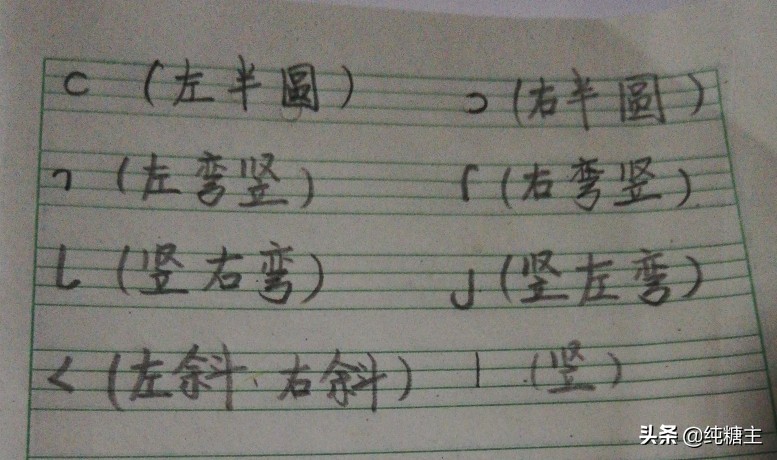 c （左半圆） ɔ （右半圆）
㇕ （左弯竖） ɾ （右弯竖）
㇄ （竖右弯） 亅 （竖左弯）
< （左斜、右斜） 丨 （竖）
头条 @纯糖主